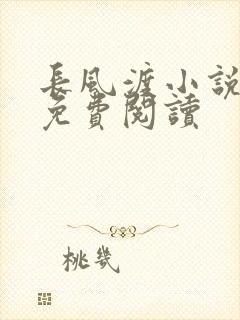 長風渡小說
免費閱讀
桃幾